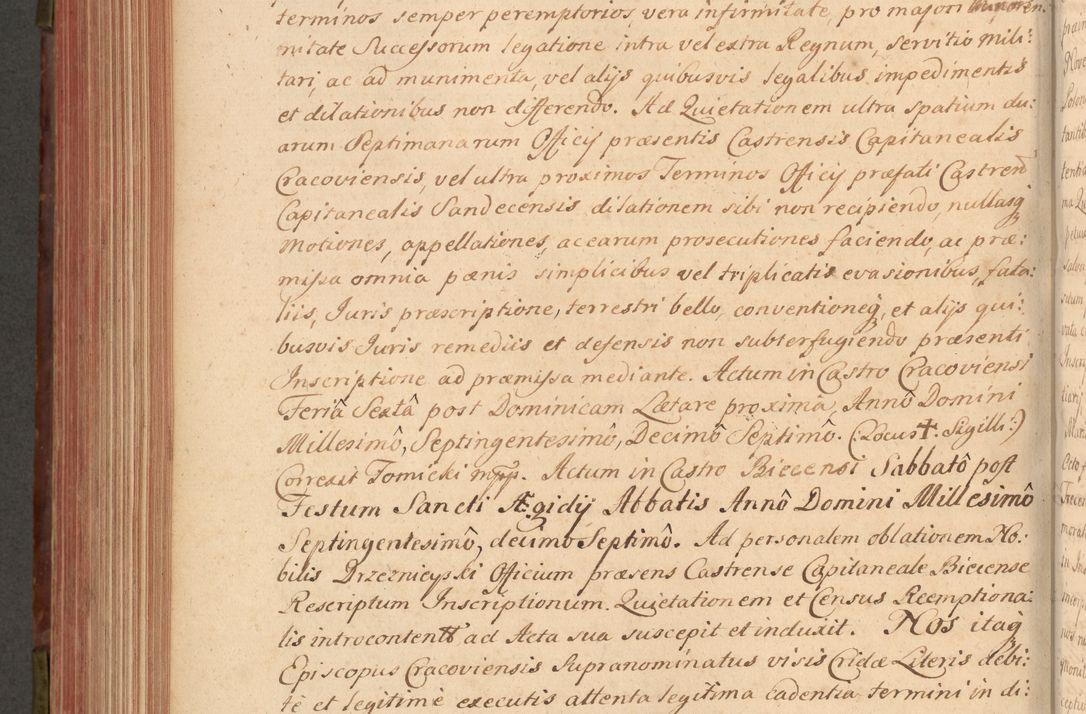 terminos semper peremptorios, vera infirmitate, pro majori
mitate Successorum legatione intra vel extra Regnum, servitio mili:
tari, ac ad munimenta, vel alijs quibusvis legalibus impedimentis
et dilationibus non differendo. Ad Quietationem ultra spatium du:
arum Septimanarum Officij præsentis Castrensis Capitanealis
Cracoviensis, vel ultra proximos Terminos Officij præfati Castren
Capitanealis Sandecensis dilationem sibi non recipiendo, nullasq̨
motiones, appellationes, ac earum prosecutiones faciendo, ac præ:
missa omnia pœnis simplicibus vel triplicatis evasionibus, fata:
liis, Juris præscriptione, terrestri bello, conventioneq̨, et alijs qui:
busvis Juris remediis et defensis non subterfugiendo præsenti
Inscriptione ad præmissa mediante. Actum in Castro Cracoviensi
Feriâ Sextâ post Dominicam Lætare proxima, Annô Domini
Millesimô, Septingentesimô, Decimô Septimô. (:Locus ✝. Sigilli:)
Correxit Tomicki mpp. Actum in Castro Biecensi Sabbatô post
Festum Sancti Ægidij Abbatis Annô Domini Millesimô
Septingentesimô, decimo Septimô. Ad personalem oblationem No:
bilis Drzeznicyski Officium præsens Castrense Capitaneale Biecense
Rescriptum Inscriptionum Quietationem et Census Reemptiona:
lis introcontent ad Acta sua suscepit et induxit. Nos itaq̨
Episcopus Cracoviensis Supranominatus visis Cridæ Literis debi:
tè et legitimè executis attenta legitima cadentia termini in di: